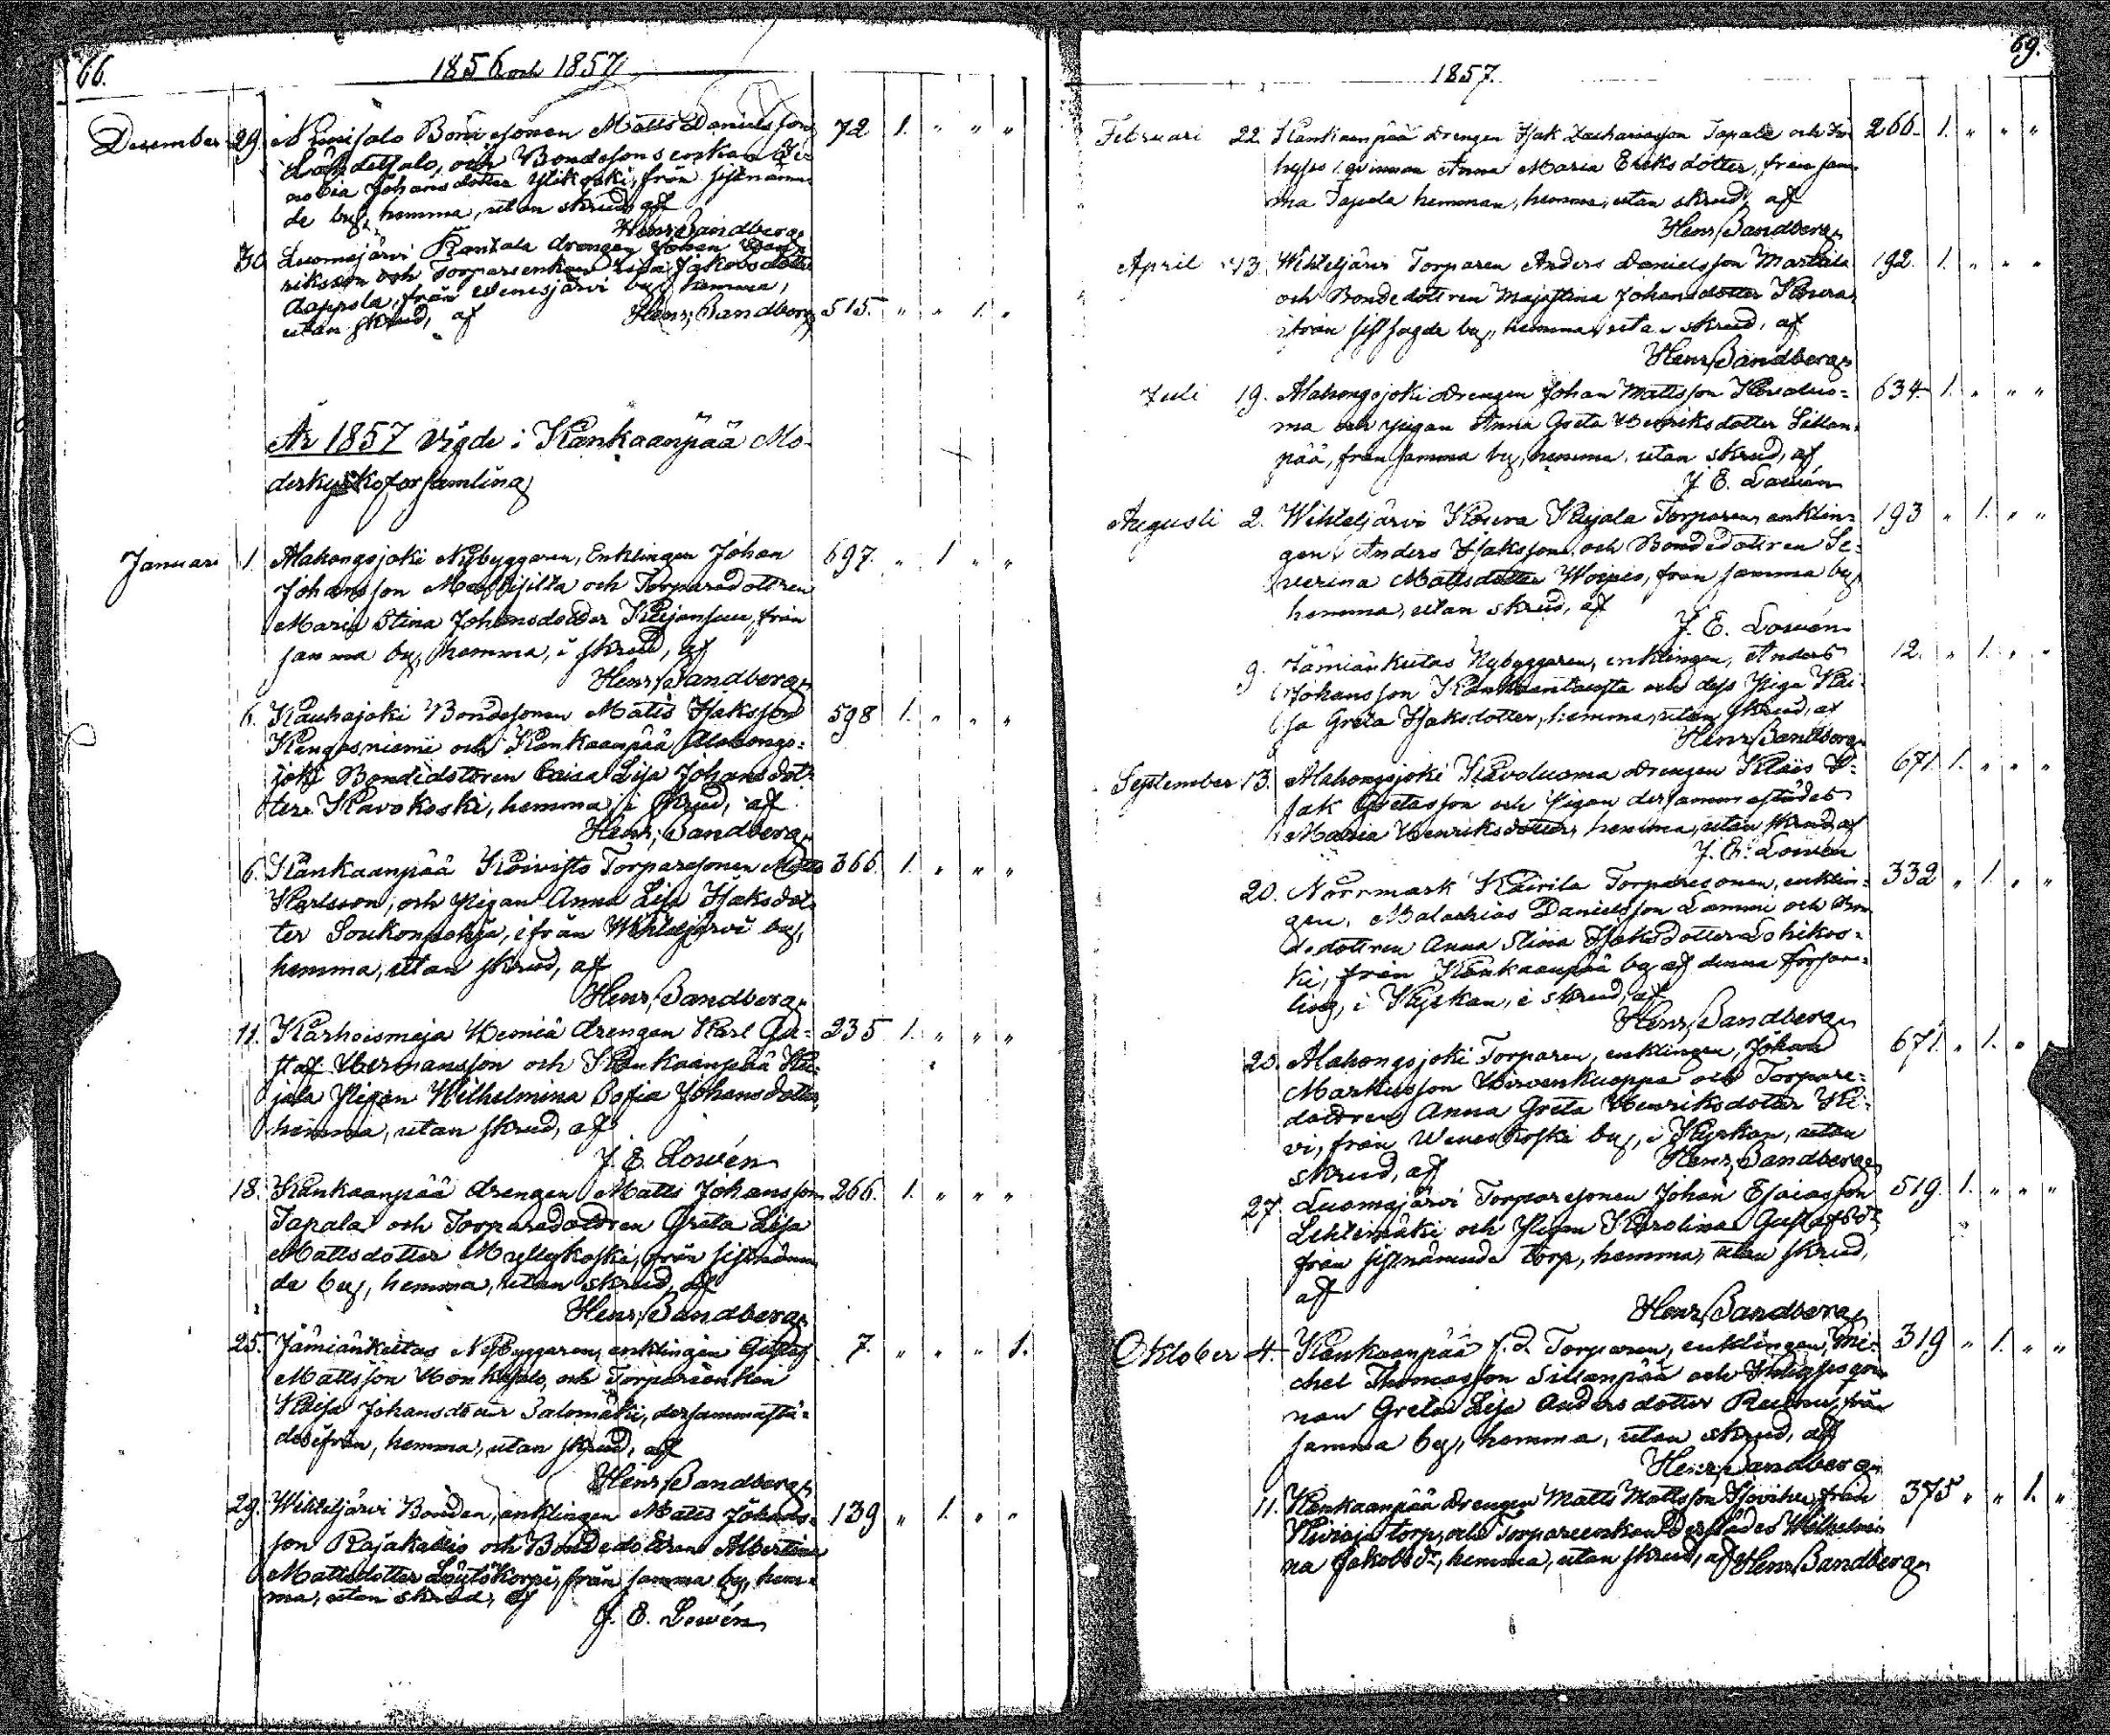 66.
1856 och 1857
December 29. Niinisalo Bondesonen Matts Danielsson 72 1. " " "
och Bondesons enkan Ze-
nobia Johansdotter Ylikoski, från sistnämn-
de by, hemma, utan skrud, af
Henr. Sandberg
30. Luomajärvi Rantala drengen Johan Hen-
riksson och Torpareenkan Lisa Jakobsdotter
Aappola, från Wenesjärvi by, hemma,
utan skrud, af Henr. Sandberg 515. " " 1. "
År 1857 Vigde i Kankaanpää Mo-
derkyrkoförsamling
Januari 1. Alahongojoki Nybyggaren, Enklingen Johan 697. " 1 " "
Johansson och Torparedottren
Maria Stina Johansdotter Keijansuu, från
samma by, hemma, i skrud, af
Henr. Sandberg
6. Kauhajoki Bondesonen Matts Isaksson 598 1. " " "
Kangasniemi och Kankaanpää Alahongo-
joki Bondedottren Caisa Lisa Johansdot-
ter Karvokoski, hemma, i skrud, af
Henr. Sandberg
6. Kankaanpää Koivisto Torparesonen Matts 366. 1. " " "
Karlsson, och Pigan Anna Lisa Isaksdot-
ter Soukonpohja, ifrån Wihteljärvi by,
hemma, utan skrud, af
Henr. Sandberg
11. Karhoismaja Heoniä drengen Karl Gu- 235 1. " " "
staf Hermansson och Kankaanpää Ku-
jala Pigan Wilhelmina Sofia Johansdotter,
hemma, utan skrud, af
J. E. Lowén
18. Kankaanpää drengen Matts Johansson 266. 1. " " "
Tapala och Torparedottren Greta Lisa
Mattsdotter Myllykoski, från sistnämn-
de by, hemma, utan skrud, af
Henr. Sandberg
25. Jämiänkeitas Nybyggaren, enklingen Gustaf 7. " " " 1.
Mattsson Honkasalo, och Torpareenkan
Kaisa Johansdotter Salomäki, dersammastä-
des ifrån, hemma, utan skrud, af
Henr. Sandberg
29. Wihteljärvi Bonden, enklingen Matts Johans- 139 " 1. " "
son Rajakallio och Bondedottren Albertina
Mattsdotter Loutokorpi, från samma by, hem-
ma, utan skrud, af
J. E. Lowén
69.
1857.
Februari 22. Kankaanpää drengen Isak Zachariasson Tapala och In- 266. 1. " " "
hyses qvinnan Anna Maria Eriksdotter, från sam-
ma Tapala hemman, hemma, utan skrud, af
Henr. Sandberg
April 13. Wihteljärvi Torparen Anders Danielsson Markkila 192. 1. " " "
och Bondedottren Majastina Johansdotter Koura,
ifrån sistsagde by, hemma, utan skrud, af
Henr. Sandberg
Juli 19. Alahongojoki drengen Johan Mattsson Karvaluo- 634. 1. " " "
ma och pigan Anna Greta Henriksdotter Sillan-
pää, från samma by, hemma, utan skrud, af
J. E. Lowén
Augusti 2. Wihteljärvi Koura Kujala Torparen, enklin- 193 " 1. " "
gen Anders Isaksson och Bondedottren Se-
verina Mattsdotter Woipio, från samma by
hemma, utan skrud, af
J. E. Lowén
9. Jämiänkeitas Nybyggaren, enklingen, Anders 12. " 1. " "
Johansson Kankaantausta och dess Piga Kai-
sa Greta Isaksdotter, hemma, utan skrud, af
Henr. Sandberg
September 13. Alahongojoki Karvoluoma drengen Klaës I- 671. 1. " " "
sak Gretasson och Pigan dersammastädes
Maria Henriksdotter, hemma, utan skrud, af
J. E. Lowén
20. Norrmark Kairila Torparesonen, enklin- 332 " 1. " "
gen, Malachias Danielsson Lammi och Bon-
dedottren Anna Stina Isaksdotter Lohikos-
ki, från Kankaanpää by af denna försam-
ling, i Kyrkan, i skrud, af
Henr. Sandberg
20. Alahongojoki Torparen, enklingen, Johan 671. " 1. " "
Markusson Hirvenkuoppa och Torpare-
dottren Anna Greta Henriksdotter Ki-
vi, från Weneskoski by, i Kyrkan, utan
skrud, af Henr. Sandberg
27. Luomajärvi Torparesonen Johan Esaiasson 519. 1. " " "
Lehtimäki och Pigan Karolina Gustafsdr
från sistnämnde torp, hemma, utan skrud,
af
Henr. Sandberg
Oktober 4. Kankaanpää f. d. Torparen, enklingen, Mi- 319 " 1. " "
chel Thomasson Sillanpää och Inhysesqvin-
nan Greta Lisa Andersdotter Raumu, från
samma by, hemma, utan skrud, af
Henr. Sandberg
11. Kankaanpää drengen Matts Mattsson från 375 " " 1. "
torp, och Torpareenkan derstädes Wilhelmi-
na Jakobsdr, hemma, utan skrud, af Henr. Sandberg